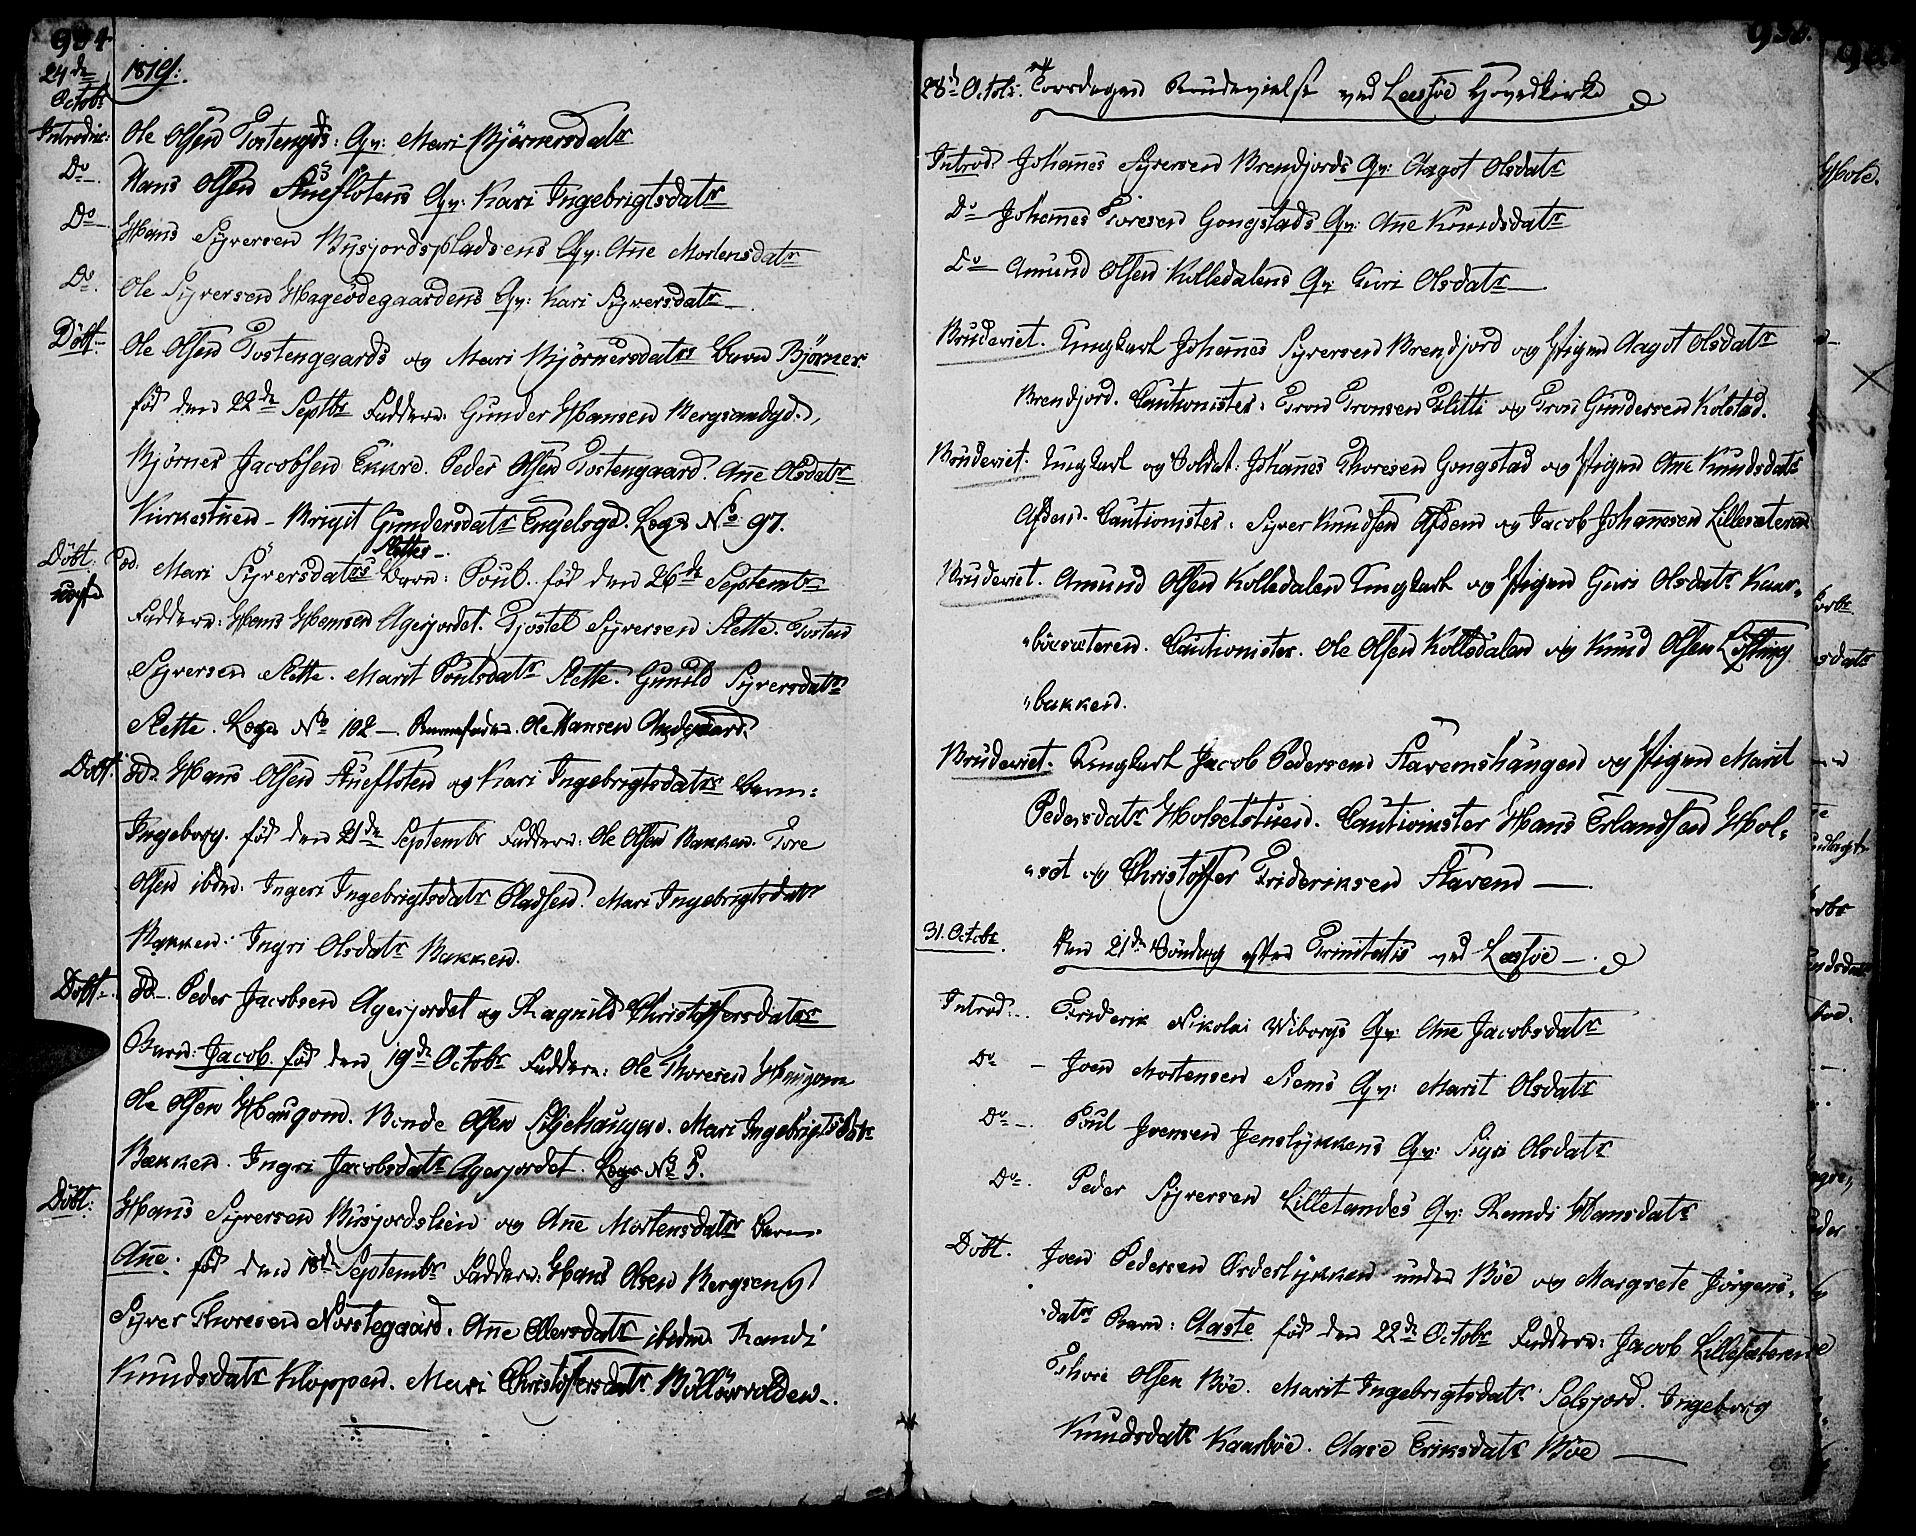 24de Octobr 1819:
Introduc: Ole Olsen Tostengds: Qv: Mari Bjørnersdatr
Do Hans Olsen Stueflotens Qv: Kari Ingebrigtsdatr
Do Hans Syversen Busjordspladsens Qv: Ane Mortensdatr
Do Ole Syversen Hageødegaardens Qv: Kari Syversdatr
Döbt. Ole Olsen Tostengaards og Mari Bjørnersdatrs Barn Bjørner
fød den 22de Septbr Faddere: Gunder Hansen Bergsandgd.
Bjørner Jacobsen Enkre. Peder Olsen Tostengaard. Ane Olsdatr
Kirkestuen - Brigit Gundersdatr Engelsgd. Læg No 97.
Döbt. Mari Syversdatrs Slette Barn: Poul. fød den 26de Septembr
Faddere: Hans Hansen Agerjordet. Tjøstel Syversen Slette. Tosten
Syversen Slette. Marit Poulsdatr Slette. Gunild Syversdatr
Slette. Læg No 102 - Barnefader. Ole Hansen
Döbt. Hans Olsen Stuefloten og Kari Ingebrigtsdatrs Barn:
Ingeborg. fød den 21de Septembr Faddere: Ole Olsen Bakken. Tore
Olsen ibdm: Ingeri Ingebrigtsdatr Pladsen. Mari Ingebrigtsdatr
Bakken. Ingri Olsdatr Bakken.
Döbt. Peder Jacobsen Agerjordet og Ragnild Christoffersdatrs
Barn: Jacob. fød den 19de Octobr Faddere: Ole Thoresen Haugom
Ole Olsen Haugom. Bonde Olsen Liljehaugen. Mari Ingebrigtsdatr
Bækken. Ingri Jacobsdatr Agerjordet. Læg No 5.
Döbt: Hans Syversen Busjordslien og Ane Mortensdatrs Barn
Ane. fød den 18de Septembr Faddere: Hans Olsen Bergseng
Syver Thoresen Norstegaard. Ane Ellersdatr ibdm Randi
Knudsdatr Kloppen. Mari Christofersdatr
28de Octobr. Torsdagen Brudevielse ved Lessøe Hovedkirke
Introd. Johanes Syversen Brendjords Qv: Aagot Olsdatr
Do Johanes Toresen Gongstads Qv: Ane Knudsdatr
Do Amund Olsen Kolledalens Qv: Guri Olsdatr
Brudeviet. Ungkarl Johanes Syversen Brendjord og Pigen Aagot Olsdatr
Brendjord. Cautionister: Tron Tronsen Flitti og Tron Gundersen Kolstad.
Brudeviet. Ungkarl og Soldat: Johanes Thoresen Gongstad og Pigen Ane Knudsdatr
Afdem. Cautionister: Syver Knudsen Afdem og Jacob Johannesen Lillesæteren
Brudeviet. Amund Olsen Kolledalen Ungkarl og Pigen Guri Olsdatr Kaar-
bøesæteren. Cautionister. Ole Olsen Kolledalen og Knud Olsen
bakken.
Brudeviet. Ungkarl Jacob Pedersen Stavemshaugen og Pigen Marit
Pedersdatr Holsetstuen. Cautionister Hans Erlandsen Hol-
set og Christoffer Frideriksen Stavem
31. Octobr. Den 21de Søndag efter Trinitatis ved Lessøe
Introd: Friderik Nikolai Wiborgs Qv: Ane Jacobsdatr
Do - Joen Mortensen Nems Qv: Marit Olsdatr
Do - Poul Joensen Jenslykkens Qv: Sigri Olsdatr
Do. Peder Syversen Lilletandes Qv: Randi Hansdatr
Döbt. Joen Pedersen Orderlykken under Bøe og Margrete Jørgens-
datrs Barn: Aaste fød den 22de Octobr Faddere: Jacob Lillesæterene
Thore Olsen Bøe. Marit Ingebrigtsdatr Selsjord. Ingeborg
Knudsdatr Kaarbøe. Aase Eriksdatr Bøe